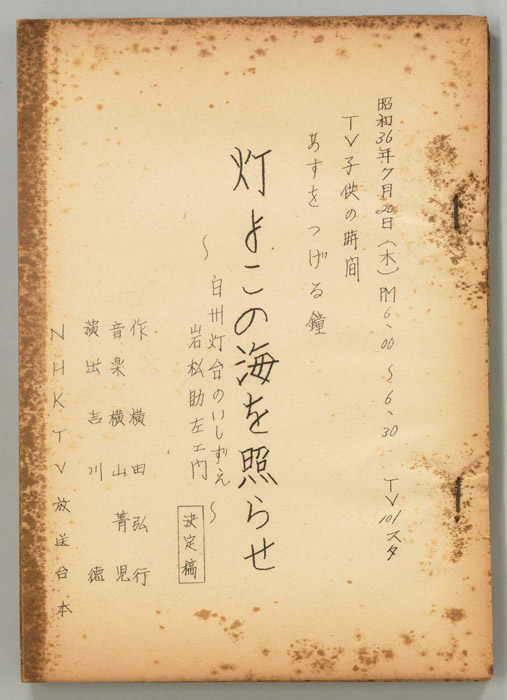 昭和36年7月20日（木）PM6、00～6、30 TV101スタ
TV子供の時間
あすをつげる鐘
灯よこの海を照らせ
～白州灯台のいしずえ
岩松助左エ門～
決定稿
作 横田弘行
音楽 横山菁児
演出 吉川徳
NHKTV放送台本